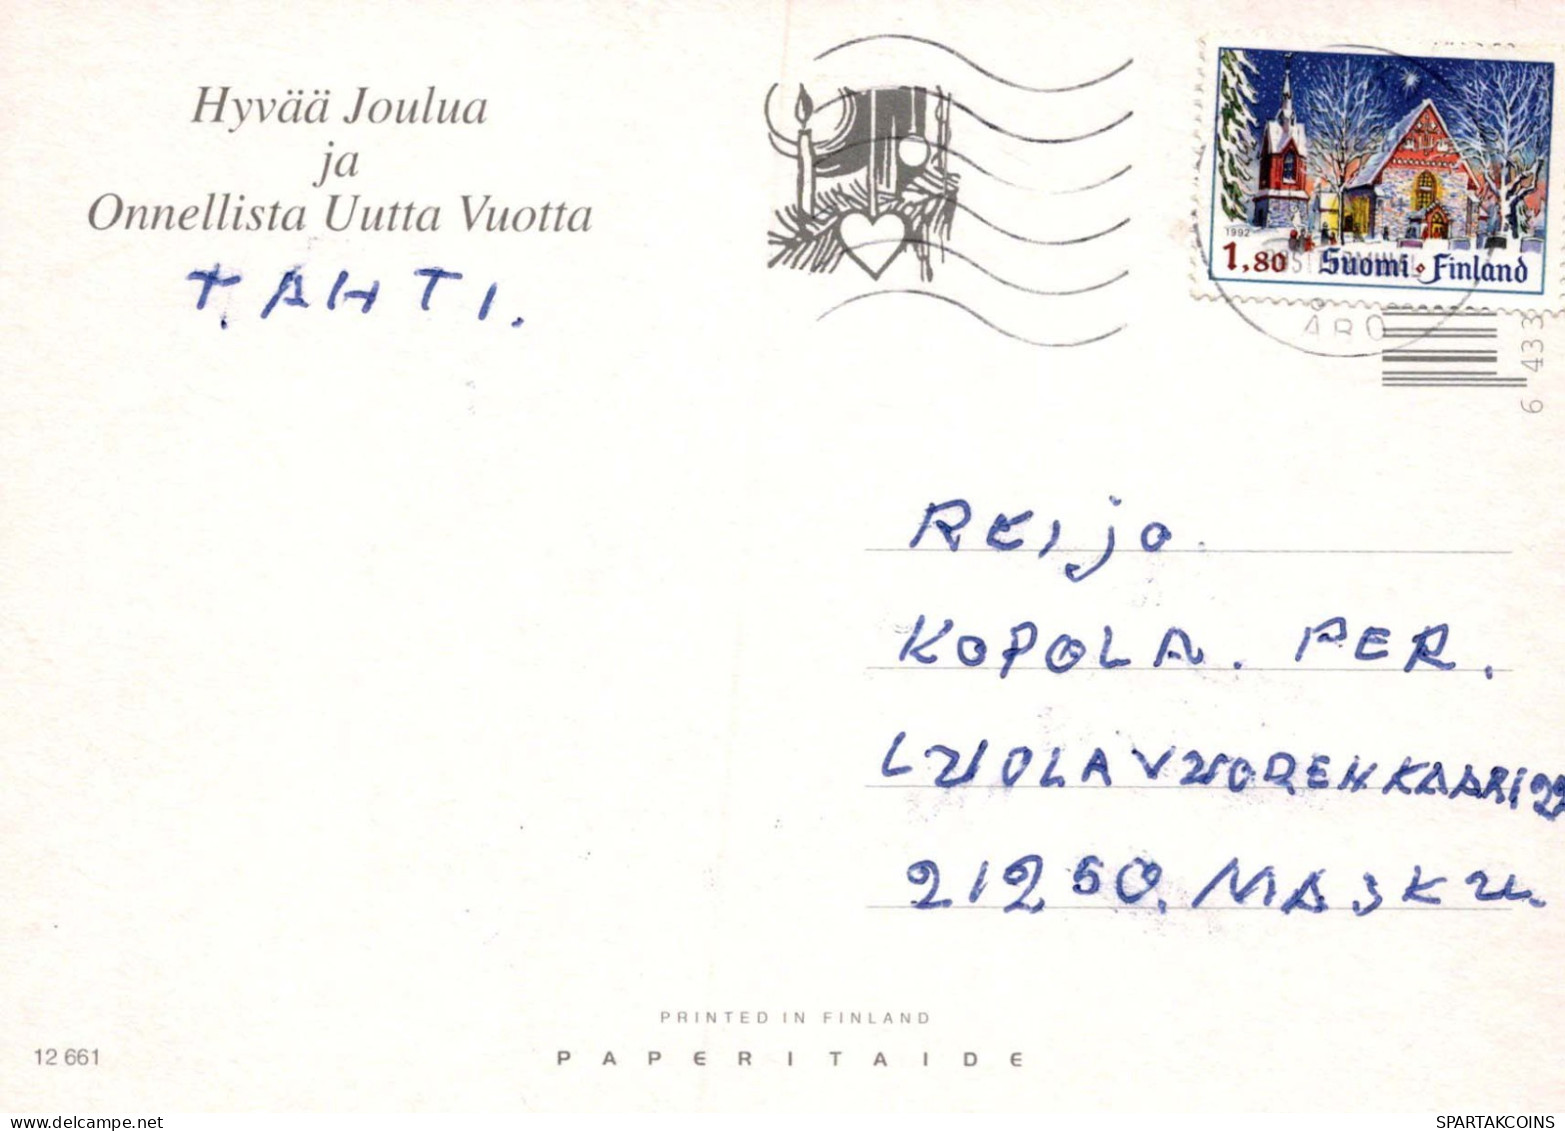 Hyvää Joulua
ja
Onnellista Uutta Vuotta
TAHTI.
1992
1,80 Suomi Finland
ÅBO
6 433
REijo
KOPOLA. PER.
LUOLAVUORENKAARI 22
21250. MASKU.
PRINTED IN FINLAND
12 661
PAPERITAIDE
SPARTAKCOINS